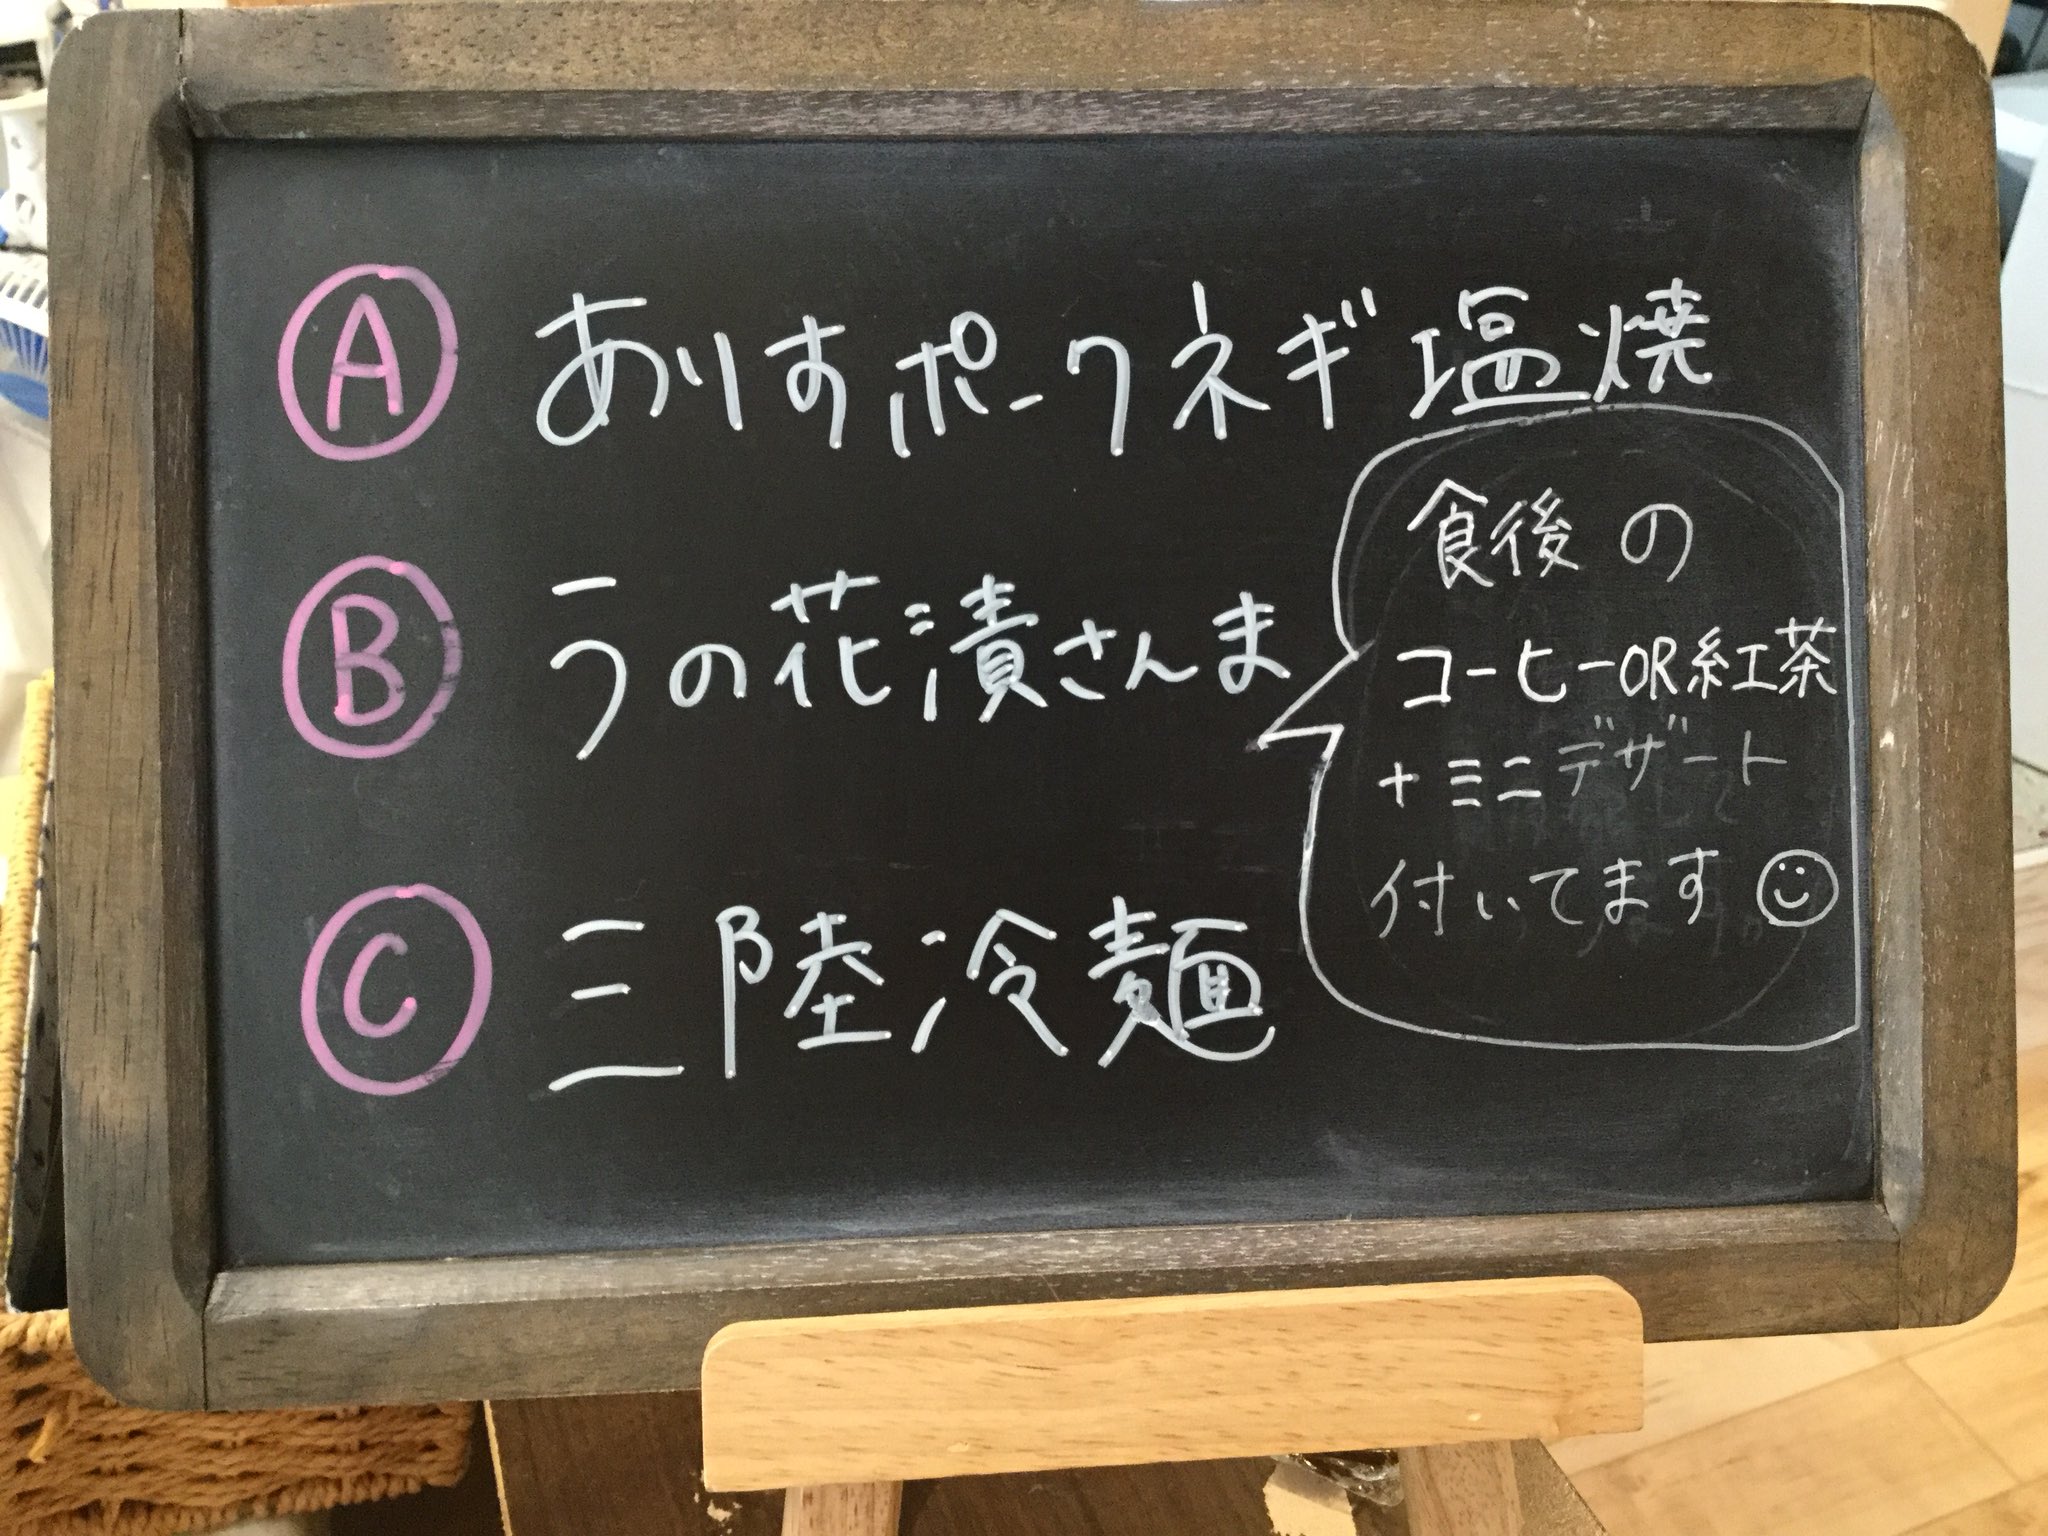 Ⓐ ありすポークネギ塩焼
Ⓑ うの花漬さんま
Ⓒ 三陸冷麺
食後の
コーヒーOR紅茶
+ミニデザート
付いてます